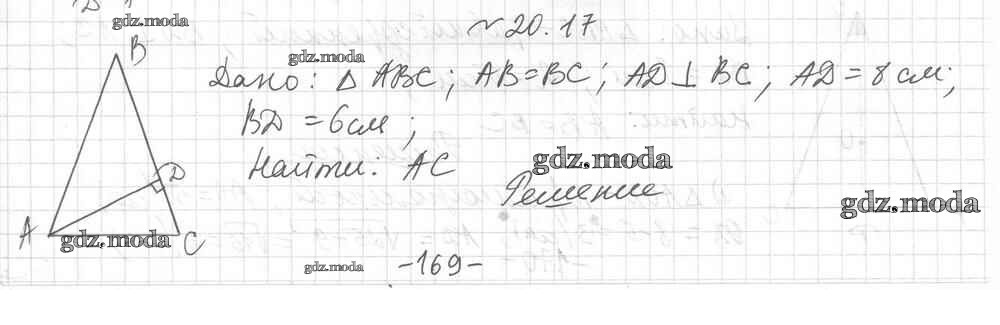 gdz.moda
№ 20.17
B
gdz.moda
Дано: △ ABC; AB=BC; AD⊥BC; AD = 8 см;
BD = 6 см;
Найти: AC
gdz.moda
D
Решение
gdz.moda
A
gdz.moda
C
gdz.moda
-169-